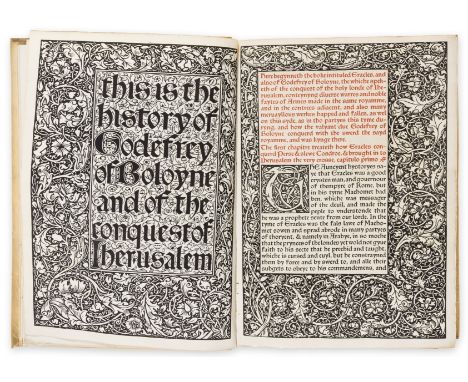 this is the
history of
Godefrey
of Boloyne
and of the
conquest of
Iherusalem
Here begynneth the boke intituled Eracles, and
also of Godefrey of Boloyne, the whiche spek-
eth of the conquest of the holy londe of Ihe-
rusalem, conteynyng diuerse warres and noble
faytes of Armes made in the same royamme,
and in the contrees adiacent, and also many
meruayllous werkes happed and fallen, as wel
on this syde, as in the partyes this tyme du-
ryng, and how the valyant duc Godefrey of
Boloyne conquerd with the swerd the sayd
royamme, and was kynge there.
The first chapitre treateth how Eracles con-
querd Perse & slewe Cosdroe, & brought in to
Iherusalem the very crosse, capitulo primo
THE Auncyent hystoryes say-
en that Eracles was a good
crysten man, and gouernour
of thempyre of Rome, but
in his tyme Machomet had
ben, which was messager
of the deuil, and made the
peple to vnderstonde that
he was a prophete sente from our lorde. In the
tyme of Eracles was the fals lawe of Macho-
met sowen and sprad abrode in many partyes
of thoryent, & namely in Arabye, in so moche
that the prynces of the londes yet wold not gyue
faith to his secte that he prechid and taught,
whiche is cursed and euyl, but he constrayned
them by force and by swerd to, and alle their
subgets to obeye to his commandemens, and